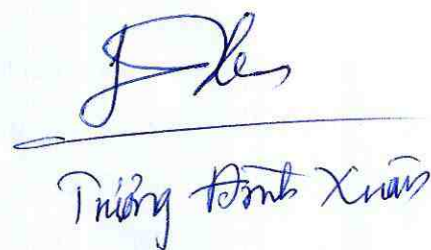 Trương Đình Xuân